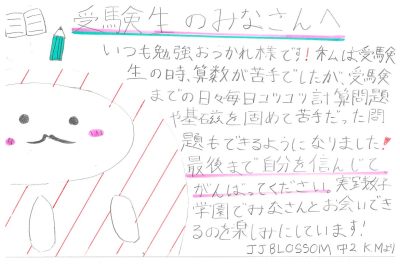 受験生のみなさんへ
いつも勉強おつかれ様です!私は受験
生の時、算数が苦手でしたが、受験
までの日々毎日コツコツ計算問題
や基礎を固めて苦手だった問
題もできるようになりました!
最後まで自分を信んじて
がんばってください。実践女子
学園でみなさんとお会いでき
るのを楽しみにしています!
JJBLOSSOM 中2 K.Mより